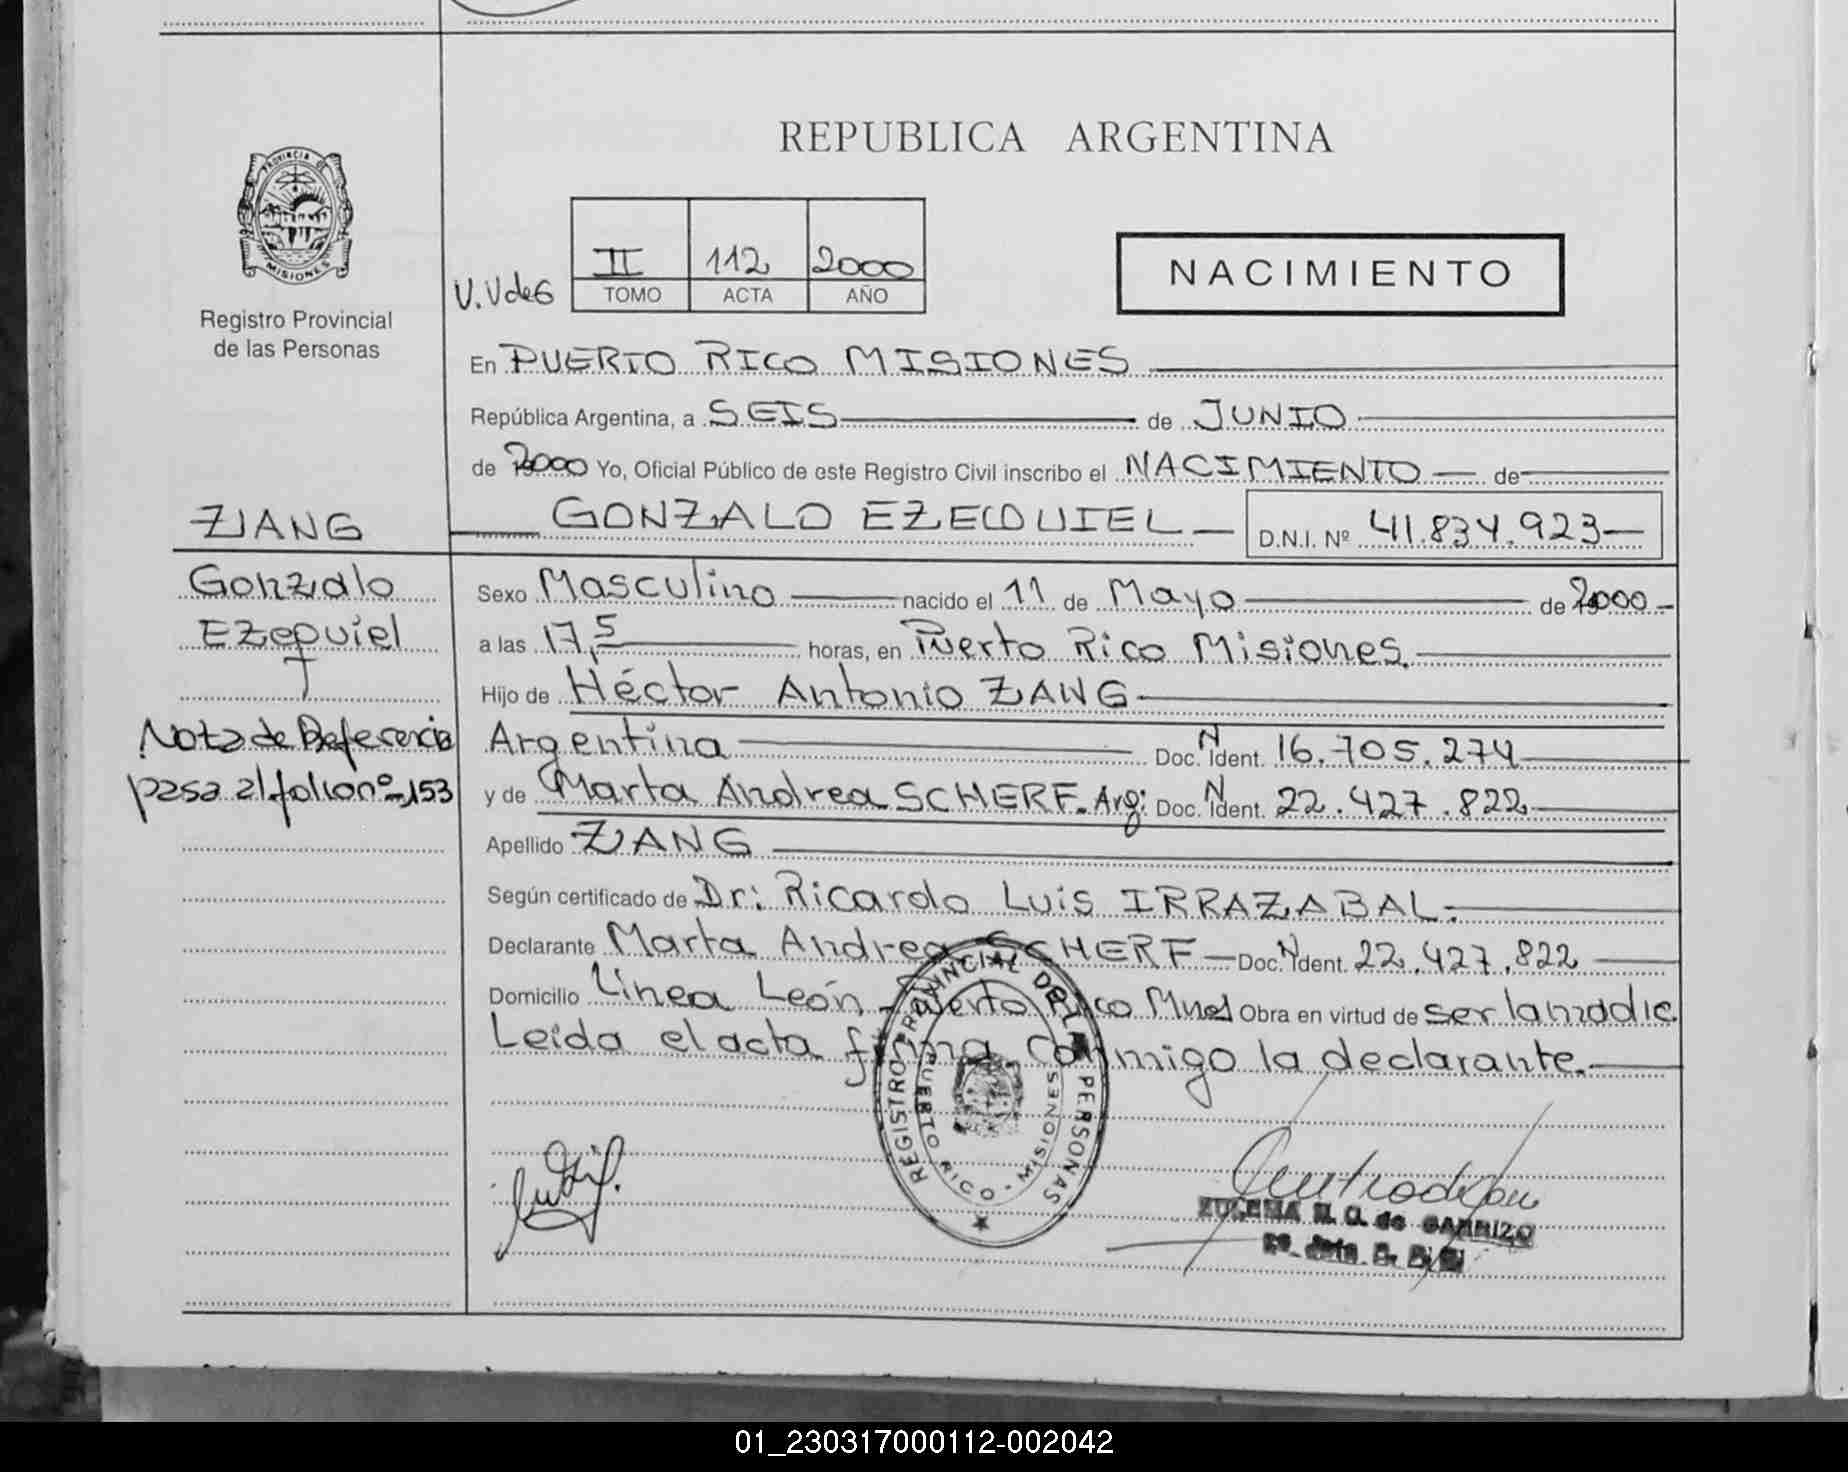 REPUBLICA ARGENTINA
PROVINCIA DE
MISIONES
Registro Provincial
de las Personas
V.V de G
II 112 2000
TOMO ACTA AÑO
NACIMIENTO
En PUERTO RICO MISIONES
República Argentina, a SEIS de JUNIO
de 2000 Yo, Oficial Público de este Registro Civil inscribo el NACIMIENTO de
GONZALO EZEQUIEL D.N.I. Nº 41.834.923
ZANG
Gonzalo
Ezequiel
Nota de Referencia
pasa al folio nº 153
Sexo Masculino nacido el 11 de Mayo de 2000
a las 17,5 horas, en Puerto Rico Misiones.
Hijo de Héctor Antonio ZANG
Argentina Doc. N Ident. 16.705.274
y de Marta Andrea SCHERF. Arg: Doc. N Ident. 22.427.822
Apellido ZANG
Según certificado de Dr: Ricardo Luis IRRAZABAL.
Declarante Marta Andrea SCHERF Doc. N Ident. 22.427.822
Domicilio Línea León - Puerto Rico Mnes Obra en virtud de ser la madre.
Leída el acta firma conmigo la declarante.
REGISTRO PROVINCIAL DE LAS PERSONAS
PUERTO RICO - MISIONES
de GARRIZO
01_230317000112-002042